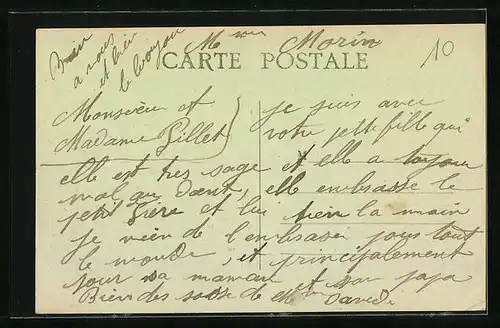 Bien
a vous
et bien
le bonjour
Mme Morin
10
CARTE POSTALE
Monsieur et
Madame Gillet
je suis avec
votre petite fille qui
elle est tres sage et elle a toujour
mal au dent, elle embrasse le
petit frère et lui tien la main
je vien de l'embrasé pour tout
le monde, et principalement
pour sa maman et son papa
Bien des de